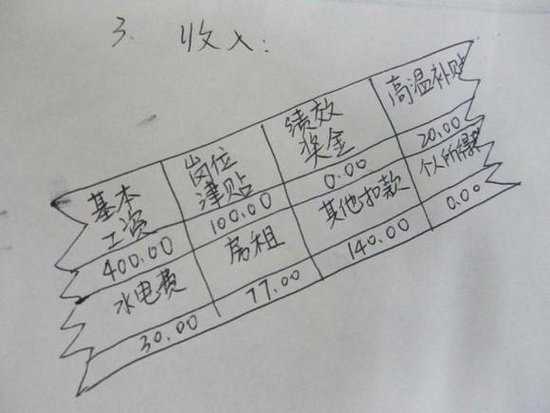 3. 收入:
基本工资 岗位津贴 绩效奖金 高温补贴
400.00 100.00 0.00 20.00
水电费 房租 其他扣款 个人所得税
30.00 77.00 140.00 0.00